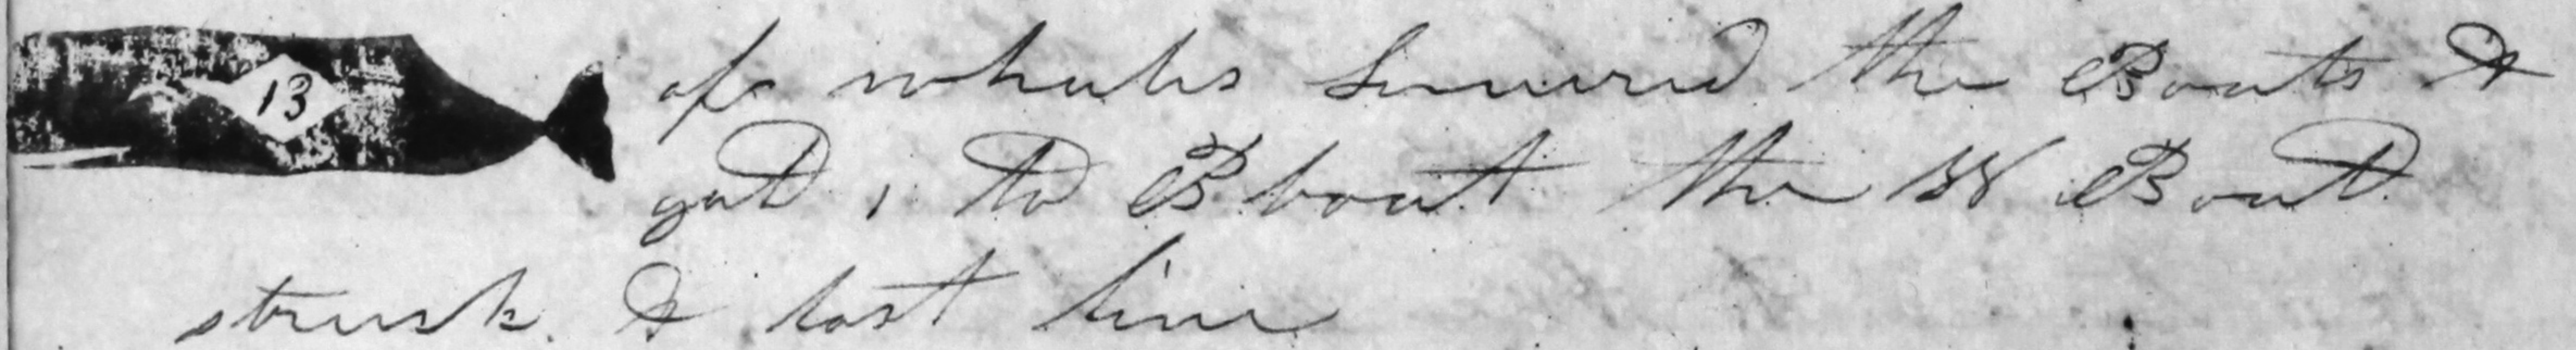 13
of whales Lowered the Boats &
got 1 to B boat the W Boat
struck & lost line